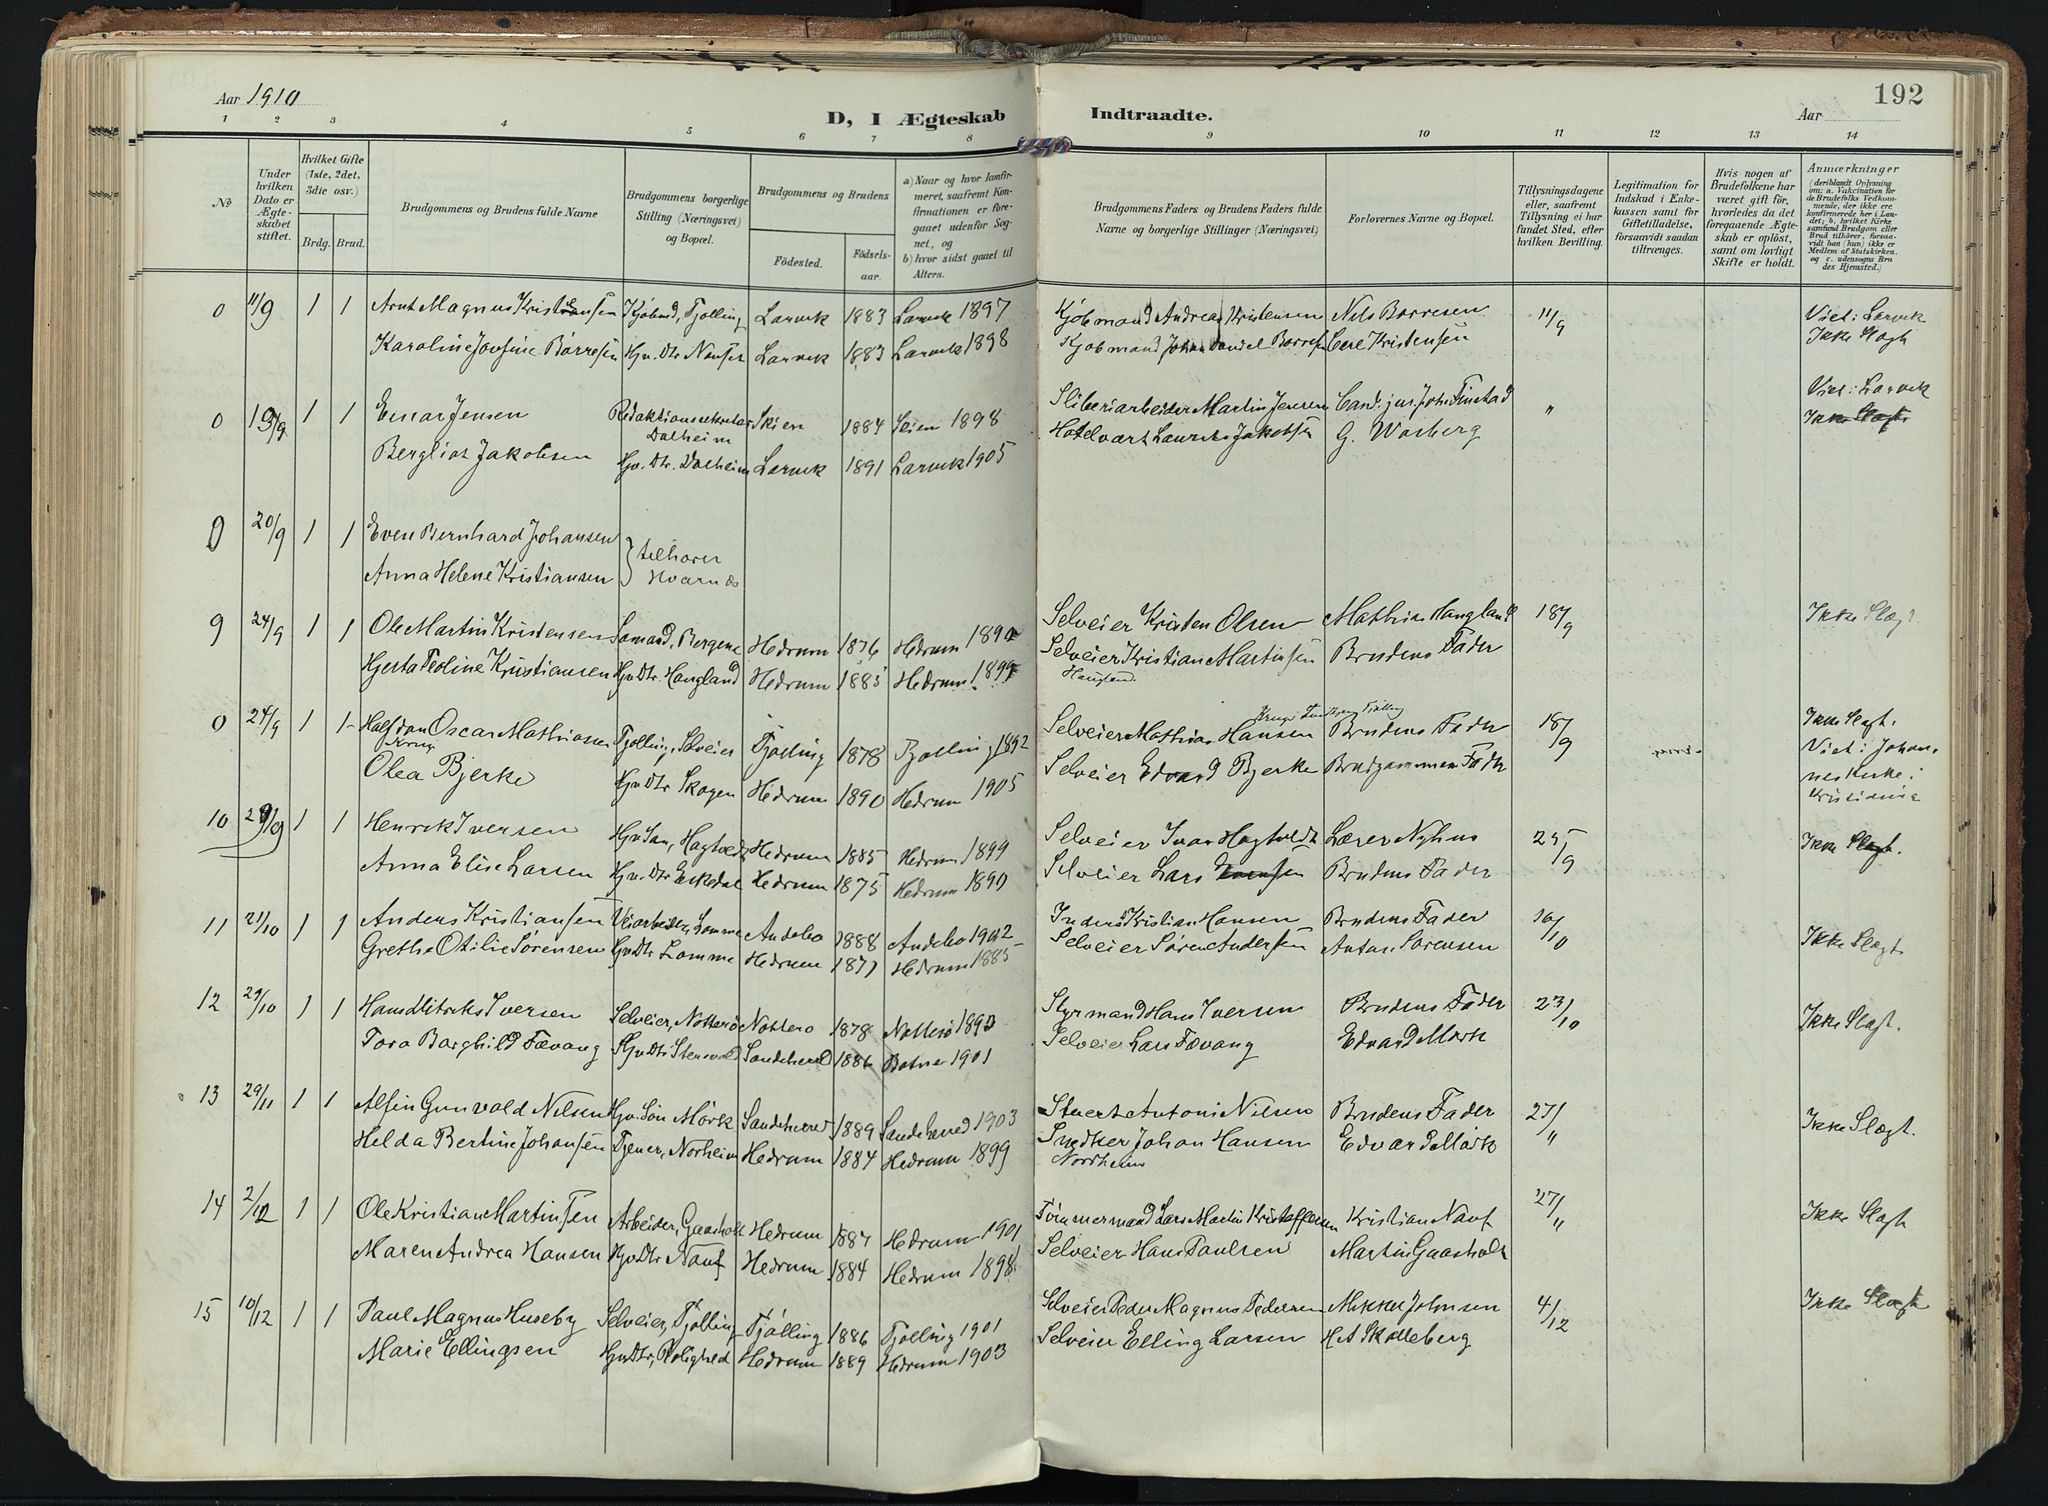 Aar 1910
D, I Ægteskab
Indtraadte.
Aar
192
1 2 3 4 5 6 7 8 9 10 11 12 13 14
№
Under hvilken Dato er Ægteskabet stiftet.
Hvilket Gifte (1ste, 2det, 3die osv.)
Brdg. Brud.
Brudgommens og Brudens fulde Navne
Brudgommens borgerlige Stilling (Næringsvei) og Bopæl.
Brudgommens og Brudens
Födested.
Födselsaar.
a) Naar og hvor konfirmeret, saafremt Konfirmationen er foregaaet udenfor Sognet, og
b) hvor sidst gaaet til Alters.
Brudgommens Faders og Brudens Faders fulde Navne og borgerlige Stillinger (Næringsvei)
Forlovernes Navne og Bopæl.
Tillysningsdagene eller, saafremt Tillysning ei har fundet Sted, efter hvilken Bevilling.
Legitimation for Indskud i Enkekassen samt for Giftetilladelse, forsaavidt saadan tiltrænges.
Hvis nogen af Brudefolkene har været gift för, hvorledes da det foregaaende Ægteskab er oplöst, samt om lovligt Skifte er holdt.
Anmærkninger
(deriblandt Oplysning om: a. Vakcination for de Brudefolks Vedkommende, der ikke ere konfirmerede her i Landet; b. hvilket Kirkesamfund Brudgom eller Brud tilhörer, forsaavidt han (hun) ikke er Medlem af Statskirken, og c. udensogns Brudes Hjemsted.)
0 11/9 1 1 Arnt Magnus Kristensen Kjøbmd, Tjølling Larvik 1883 Larvik 1897 Kjøbmand Andreas Kristensen Nils Borresen 11/9 Viet i Larvik
Karoline Josefine Børresen Hjv. Dtr. Nanset Larvik 1883 Larvik 1898 Kjøbmand Johan Børresen Carl Kristensen Ikke Slægt
0 19/9 1 1 Einar Jensen Redaktionssekretær Dalheim Skien 1884 Skien 1898 Sliberiarbeider Martin Jensen Cand. jur. Johs Finstad " Viet i Larvik
Bergliot Jakobsen Hjv. Dtr. Dalheim Larvik 1891 Larvik 1905 Hotelvært Laurits Jakobsen G. Wasberg Ikke Slægt.
0 20/9 1 1 Even Bernhard Johansen
Anna Helene Kristiansen } tilhører Hvarnes
9 24/9 1 1 Ole Martin Kristensen Sømand, Bergene Hedrum 1876 Hedrum 1890 Selveier Kristen Olsen Mathias Haugland 18/9 Ikke Slægt
Hjerta Teoline Kristiansen Hjv Dtr. Haugland Hedrum 1885 Hedrum 1899 Selveier Kristian Martinsen Brudens Fader
Haugland.
0 24/9 1 1 Halfdan Oscar Mathiasen Tjølling, Selveier Tjølling 1878 Tjølling 1892 Selveier Mathias Hansen Brudens Fader 18/9 Ikke Slægt.
Krug
Olea Bjerke Hjv Dtr Skogen Hedrum 1890 Hedrum 1905 Selveier Edvard Bjerke Brudgommens Fader Viet i Johanneskirke i Kristiania
10 29/9 1 1 Henrik Iversen Hjv Søn, Hagtvedt Hedrum 1885 Hedrum 1899 Selveier Ivar Hagtvedt Lærer Nyhus 25/9 Ikke Slægt.
Anna Elise Larsen Hjv. Dtr Eskedal Hedrum 1875 Hedrum 1890 Selveier Lars Evensen Brudens Fader
11 21/10 1 1 Anders Kristiansen Veiarbeider, Lomme Andebo 1888 Andebo 1902 Inderst Kristian Hansen Brudens Fader 16/10 Ikke Slægt
Grethe Otilie Sørensen Hjv Dtr Lomme Hedrum 1871 Hedrum 1885 Selveier Søren Andersen Anton Sørensen
12 29/10 1 1 Hans Ditriks Iversen Selveier, Nøtterø Nøtterø 1878 Nøtterø 1893 Styrmand Hans Iversen Brudens Fader 23/10 Ikke Slægt.
Tora Borghild Fævang Hjv Dtr Stensvold Sandeherred 1886 Botne 1901 Selveier Lars Fævang Edvard Mørk
13 29/11 1 1 Alfin Gunvald Nilsen Hjv. Søn Mørk Sandeherred 1889 Sandeherred 1903 Stuert Antoni Nilsen Brudens Fader 27/" Ikke Slægt.
Helda Bertine Johansen Tjener, Norheim Hedrum 1884 Hedrum 1899 Snedker Johan Hansen Edvard Mørk
Nordheim
14 2/12 1 1 Ole Kristian Martinsen Arbeider, Gaasholt Hedrum 1887 Hedrum 1901 Tømmermand Lars Martin Kristoffersen Kristian Nauf 27/" Ikke Slægt
Maren Andrea Hansen Hjv Dtr Nauf Hedrum 1884 Hedrum 1898 Selveier Hans Paulsen Martin Gaasholt
15 10/12 1 1 Paul Magnus Huseby Selveier, Tjølling Tjølling 1886 Tjølling 1901 Selveier Peder Magnus Pedersen Mikkel Johnsen 4/12 Ikke Slægt
Marie Ellingsen Hjv Dtr, Rolighed Hedrum 1889 Hedrum 1903 Selveier Elling Larsen H A Skalleberg